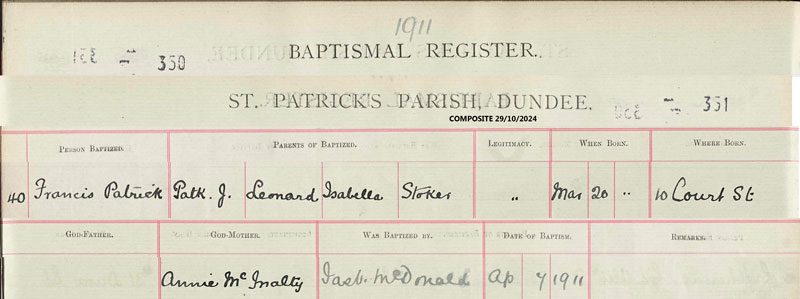 1911
BAPTISMAL REGISTER.
350
ST. PATRICK'S PARISH, DUNDEE.
351
COMPOSITE 29/10/2024
PERSON BAPTIZED. PARENTS OF BAPTIZED. LEGITIMACY. WHEN BORN. WHERE BORN.
40 Francis Patrick Patk. J. Leonard Isabella Stoker " Mar 20 " 10 Court St
GOD-FATHER. GOD-MOTHER. WAS BAPTIZED BY. DATE OF BAPTISM. REMARKS.
Annie Mc Inalty McDonald Ap 7 1911